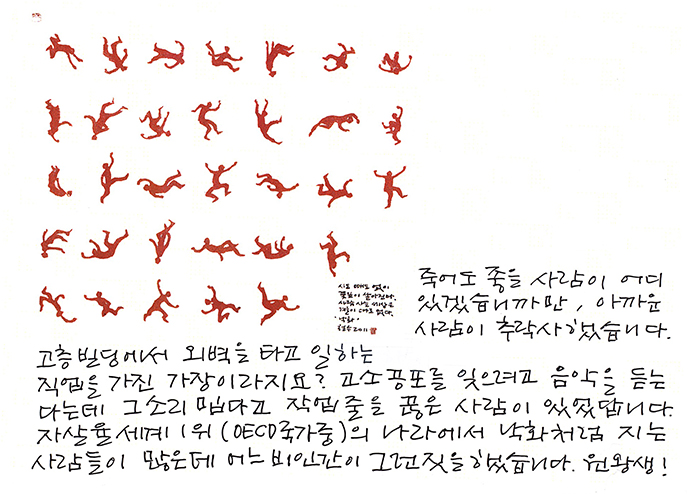 시도 때도 없이
꽃들이 떨어진다.
새벽 사는 세상은
바람이 따로 없다.
낙화
철수 2011
죽어도 좋을 사람이 어디
있겠습니까만, 아까운
사람이 추락사했습니다.
고층빌딩에서 외벽을 타고 일하는
직업을 가진 가장이라지요? 고소공포를 잊으려고 음악을 듣는
다는데 그소리 밉다고 작업줄을 끊은 사람이 있었답니다.
자살율세계1위(OECD국가중)의 나라에서 낙화처럼 지는
사람들이 많은데 어느 비인간이 그런짓을 했습니다. 원왕생!